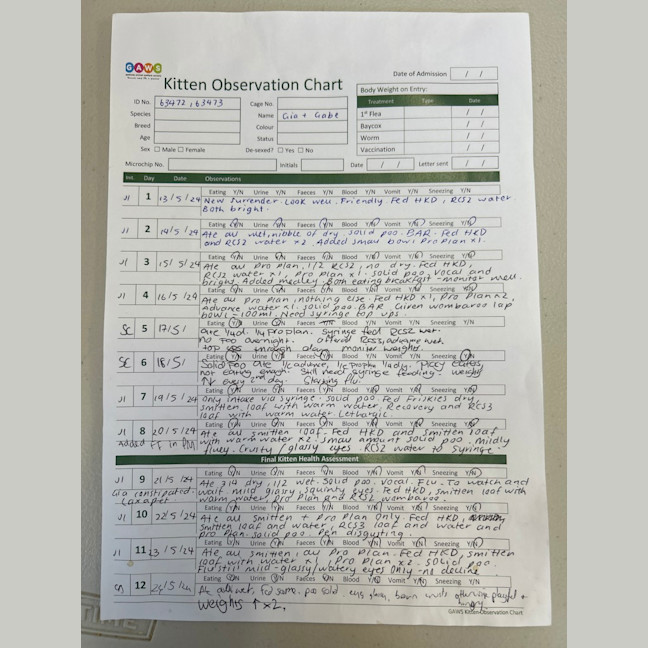 GAWS
Kitten Observation Chart
Date of Admission / /
Body Weight on Entry:
Treatment Type Date
1st Flea / /
Baycox / /
Worm / /
Vaccination / /
ID No. 63472, 63473
Species
Breed
Age
Sex Male Female
Cage No.
Name Gia + Gabe
Colour
Status
De-sexed? Yes No
Microchip No. Initials Date / / Letter sent / /
Init. Day Date Observations
Eating Y/N Urine Y/N Faeces Y/N Blood Y/N Vomit Y/N Sneezing Y/N
JI 1 13/5/24 New surrender. Look well. Friendly. Fed HKD, RCS2 water
Both bright.
Eating Y/N Urine Y/N Faeces Y/N Blood Y/N Vomit Y/N Sneezing Y/N
JI 2 14/5/24 Ate all wet, nibble of dry. Solid poo. BAR. Fed HKD
and RCS2 water x2. Added small bowl Pro Plan x1.
Eating Y/N Urine Y/N Faeces Y/N Blood Y/N Vomit Y/N Sneezing Y/N
JI 3 15/5/24 Ate all Pro Plan, 1/2 RCS2, no dry. Fed HKD,
RCS2 water x1, Pro Plan x1. Solid poo. Vocal and
bright. Added medley. Both eating breakfast - monitor well.
Eating Y/N Urine Y/N Faeces Y/N Blood Y/N Vomit Y/N Sneezing Y/N
JI 4 16/5/24 Ate all Pro Plan, nothing else. Fed HKD x1, Pro Plan x2,
Advance water x1. Solid poo. BAR. Given wombaroo lap
bowl = 100ml. Need syringe top ups.
Eating Y/N Urine Y/N Faeces Y/N Blood Y/N Vomit Y/N Sneezing Y/N
SC 5 17/5/ Ate 1/4 Pro plan. Syringe fed RCS2 wet.
no poo overnight. wet.
top ups through day. monitor weights.
Eating Y/N Urine Y/N Faeces Y/N Blood Y/N Vomit Y/N Sneezing Y/N
SC 6 18/5/ Solid Poo Ate 1/2 advance,
not eating enough. Still need syringe feeding. weight
every 2nd day. flu.
Eating Y/N Urine Y/N Faeces Y/N Blood Y/N Vomit Y/N Sneezing Y/N
JI 7 19/5/24 Only intake via syringe. Solid poo. Fed Friskies dry,
smitten loaf with warm water, Recovery and RCS3
loaf with warm water. Lethargic.
Eating Y/N Urine Y/N Faeces Y/N Blood Y/N Vomit Y/N Sneezing Y/N
JI 8 20/5/24 Ate all smitten loaf. Fed HKD and smitten loaf
with warm water x2. Small amount solid poo. Mildly
fluey. Crusty/glassy eyes RCS2 water to syringe
Final Kitten Health Assessment
Eating Y/N Urine Y/N Faeces Y/N Blood Y/N Vomit Y/N Sneezing Y/N
JI 9 21/5/24 Ate 3/4 dry, 1/2 wet. Solid poo. Vocal. Flu - To watch and
Gia constipated. wait mild glassy, squinty eyes. Fed HKD, smitten loaf with
Laxapet warm water, Pro Plan and RCS2 wombaroo.
Eating Y/N Urine Y/N Faeces Y/N Blood Y/N Vomit Y/N Sneezing Y/N
JI 10 22/5/24 Ate all smitten + Pro Plan only. Fed HKD,
smitten loaf and water, RCS3 loaf and water and
pro Plan. Solid poo. Pen disgusting.
Eating Y/N Urine Y/N Faeces Y/N Blood Y/N Vomit Y/N Sneezing Y/N
JI 11 23/5/24 Ate all smitten, all Pro Plan. Fed HKD, smitten
loaf with water x1, Pro Plan x2. Solid poo.
Flu still mild - glassy/watery eyes only - no decline.
Eating Y/N Urine Y/N Faeces Y/N Blood Y/N Vomit Y/N Sneezing Y/N
12 24/5/24 Ate all wet, fed same. poo solid. eyes glassy, brown crusts otherwise playful +
hungry.
weights ↑ x2.
GAWS Kitten Observation Chart